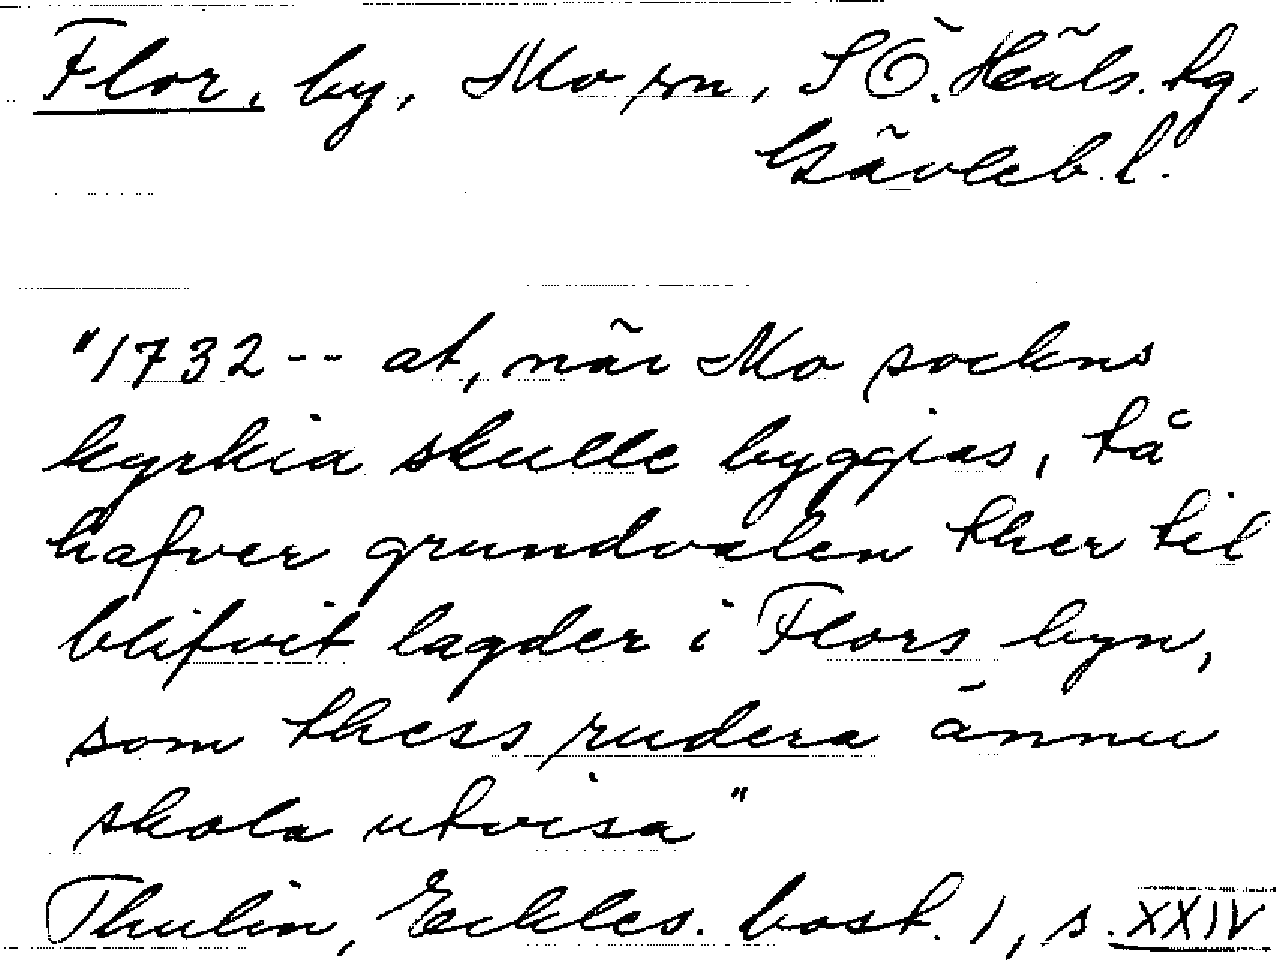 Flor, by, Mo sn, S Ö. Häls. tg,
Gävleb. l.
"1732-- at, när Mo sockns
kyrkia skulle byggias, tå
hafver grundvalen ther til
blifvit lagder i Flors byn,
som thess rudera ännu
skola utvisa"
Thulin, Eckles. bost. 1, s. XXIV